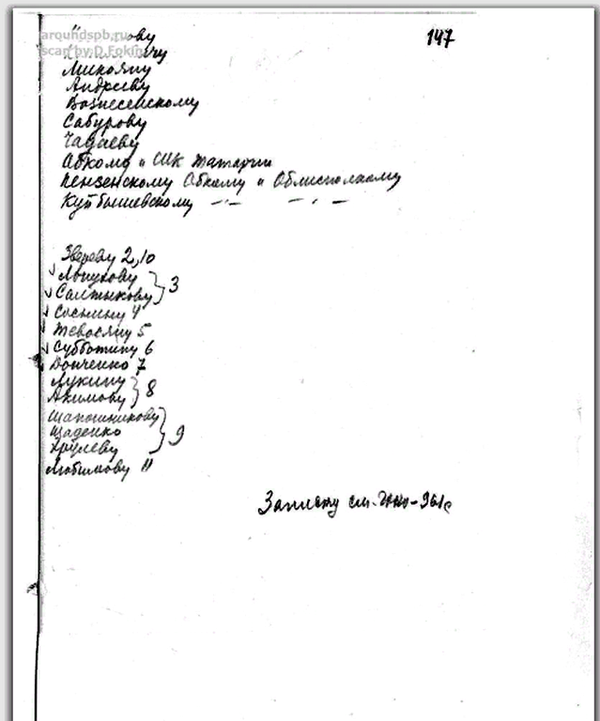 147
aroundspb.ru
scan by D.Fokin
Микояну
Андрееву
Вознесенскому
Сабурову
Чадаеву
Обкому и СНК Татарии
Пензенскому Обкому и Облисполкому
Куйбышевскому —"— —"—
Звереву 2,10
Лопухову
Салтыкову } 3
Соснину 4
Тевосяну 5
Субботину 6
Донченко 7
Лукину
Акимову } 8
Шапошникову
Щаденко
Хрулеву } 9
Любимову 11
Записку см.